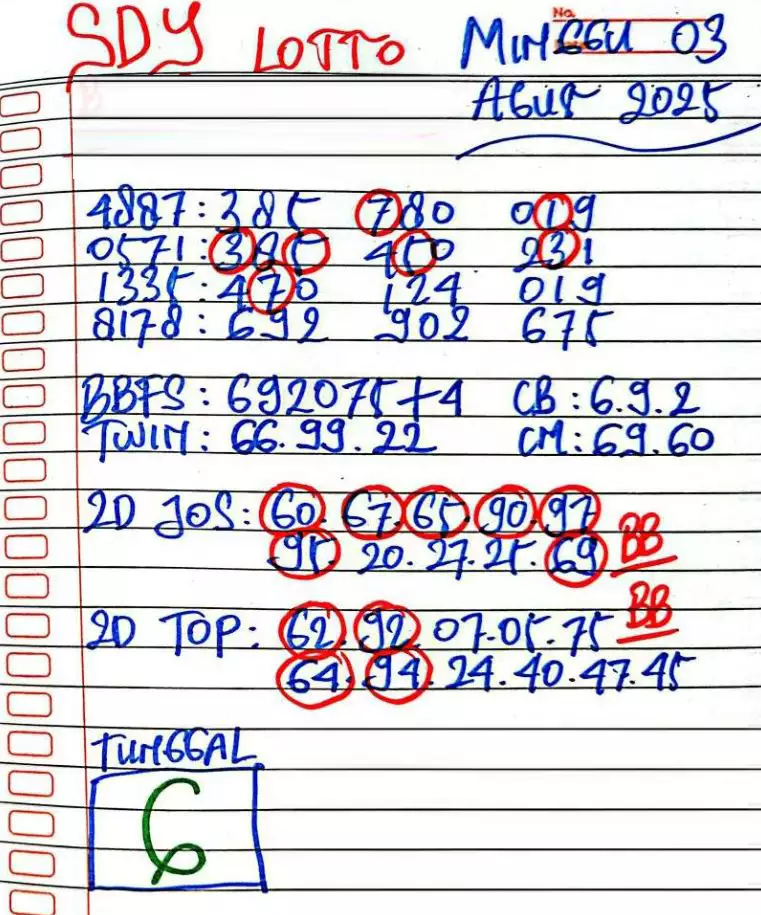 SDY LOTTO MINGGU 03
No.
AGUS 2025
4887 : 385 780 019
0571 : 385 450 231
1335 : 470 124 019
8178 : 692 902 675
BBFS : 692075+4 CB : 6.9.2
TWIN : 66.99.22 CM : 69.60
2D JOS : 60. 67. 65. 90. 97
95. 20. 27. 25. 69 BB
2D TOP : 62. 92. 07. 05. 75 BB
64. 94. 24. 40. 47. 45
TUNGGAL
6